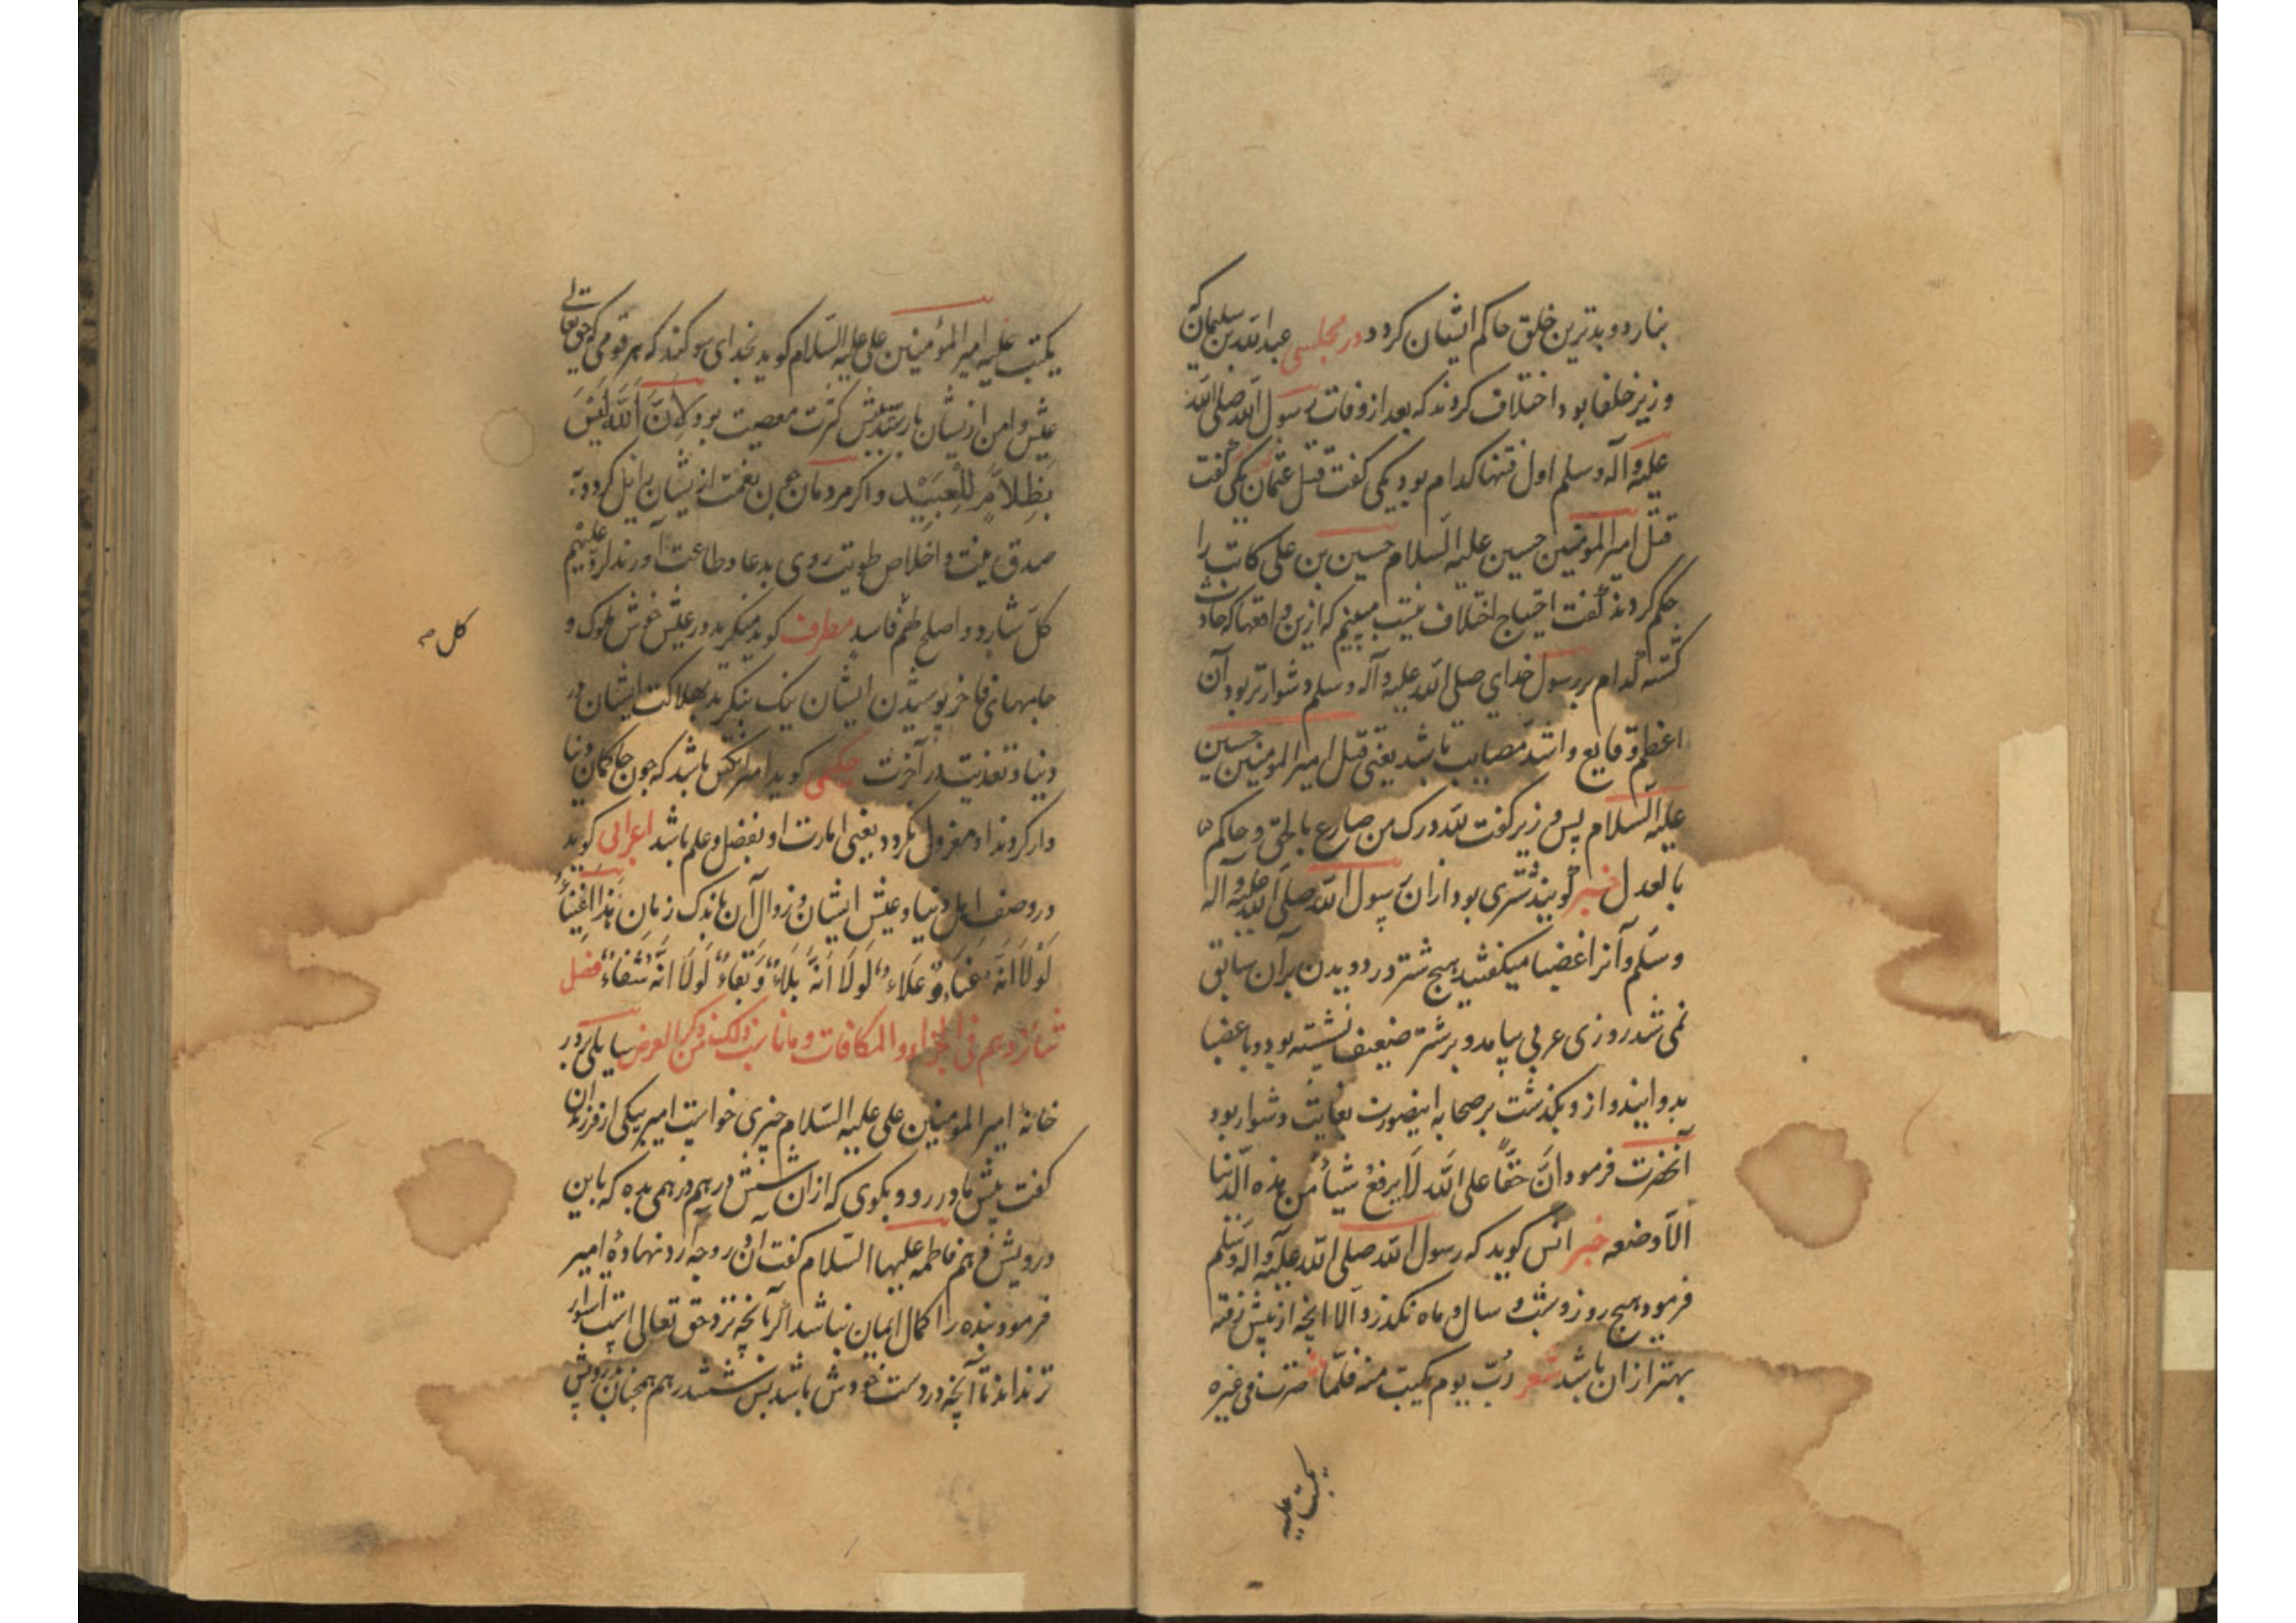 بنارد و بدترین خلق حاکم ایشان کردد در مجلسی عبدالله بن سلیمان که
وزیر خلفا بود اختلاف کردند که بعد از وفات رسول الله صلی الله
علیه و آله و سلم اول فتنها کدام بود یکی کفت قتل عثمان یکی کفت
قتل امیر المومنین حسین علیه السلام حسین بن علی کاتب را
حکم کردند کفت احتیاج اختلاف نیست ببینیم که ازین واقعها که حادث
کشته کدام بر رسول خدای صلی الله علیه و آله و سلم دشوارتر بود آن
اعظم وقایع و اشد مصایب باشد یعنی قتل امیر المومنین حسین
علیه السلام پس وزیر کفت لله درک من صارع بالحق و حاکم
بالعدل خبر کویند شتری بود از ان رسول الله صلی الله علیه و آله
و سلم و آنرا غضبا میکفتند هیچ شتر در دویدن بر آن سابق
نمی شد روزی عربی بیامد و بر شتر ضعیف نشسته بود و با غضبا
بدوانید و ازو بکذشت بر صحابه اینصورت بغایت دشوار بود
آنحضرت فرمود ان حقا علی الله لا یرفع شیأ من هذه الدنیا
الا وضعه خبر انس کوید که رسول الله صلی الله علیه و اله و سلم
فرمود هیچ روز و شب و سال و ماه نکذرد الا انچه از پیش رفته
بهتر از ان باشد شعر رب یوم بکیت منه فلما صرت فی غیره
بکیت علیه
بکیت علیه امیر المؤمنین علی علیه السلام کوید بخدای سوکند که هر قومی که حق تعالی
عیش و امن ازیشان باز ستد بیش کثرت معصیت بود لان الله لیس
بظلام للعبید و اکر مردمان چون نعمت ازیشان زائل کردد به
صدق نیت و اخلاص طویت روی بدعا و طاعت آورند لرد علیهم
کل شارد و اصلح لهم فاسد مطرف کوید منکرید در عیش خوش ملوک و
کل صح
جامهای فاخر پوشیدن ایشان نیک بنکرید بهلاکت ایشان در
دنیا و تعذیب در آخرت حکیمی کوید امیر آنکس باشد که چون حاکمان دنیا
وار کردند او معزول نکردد یعنی امارت او بفضل و علم باشد اعرابی کوید
در وصف اهل دنیا و عیش ایشان و زوال آن باندک زمان هذا اغنیاء
لولا انه فناء و علاء لولا انه بلاء و بقاء لولا انه شفاء فصل
شانزدهم فی الجزاء و المکافات و ما ناسب ذلک من ذکر العرض سایلی در
خانهٔ امیر المومنین علی علیه السلام چیزی خواست امیر بیکی از فرزندان
کفت پیش مادر رو و بکوی که از ان شش درهم درهمی بده که باین
درویش دهم فاطمه علیها السلام کفت آن در وجه ارد نهاده امیر
فرمود بنده را کمال ایمان نباشد اکر بآنچه نزد حق تعالی است استوار
تر نداند تا آنچه در دست خودش باشد پس شش درهم همچنان درویش